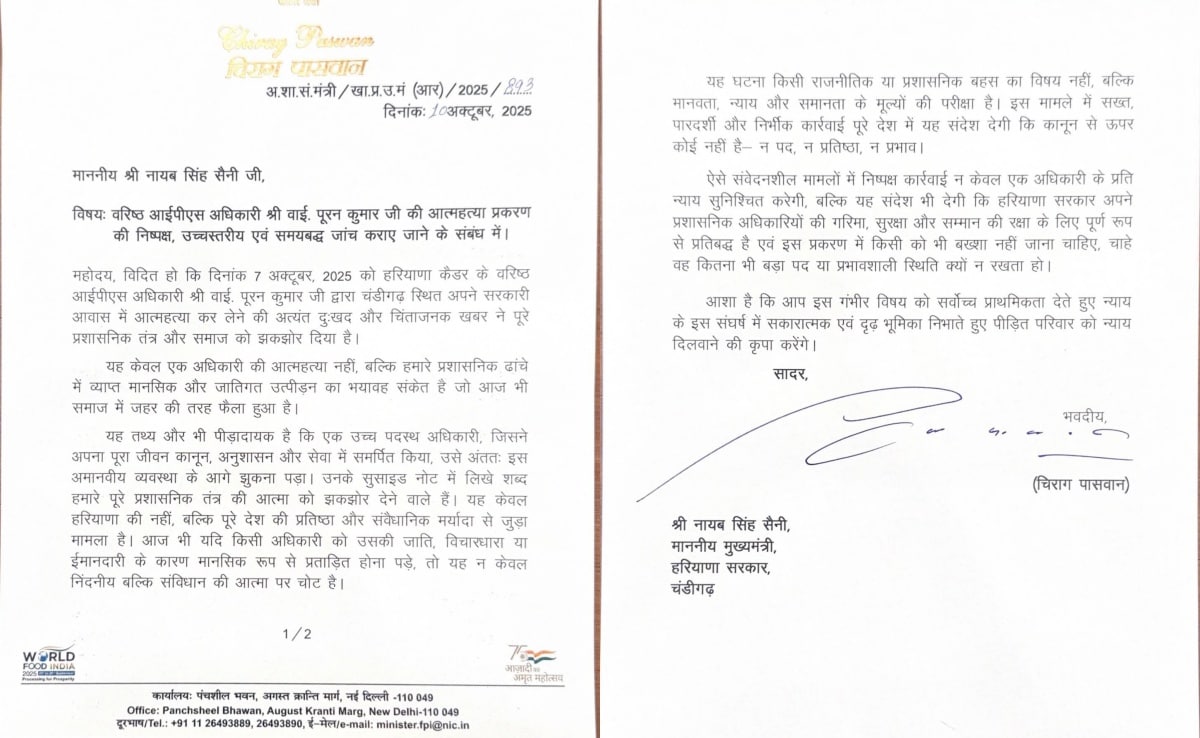 Chirag Paswan
चिराग पासवान
अ.शा.सं.मंत्री/खा.प्र.उ.मं (आर)/2025/893
दिनांकः 10अक्टूबर, 2025
माननीय श्री नायब सिंह सैनी जी,
विषयः वरिष्ठ आईपीएस अधिकारी श्री वाई. पूरन कुमार जी की आत्महत्या प्रकरण
की निष्पक्ष, उच्चस्तरीय एवं समयबद्ध जांच कराए जाने के संबंध में।
महोदय, विदित हो कि दिनांक 7 अक्टूबर, 2025 को हरियाणा कैडर के वरिष्ठ
आईपीएस अधिकारी श्री वाई. पूरन कुमार जी द्वारा चंडीगढ़ स्थित अपने सरकारी
आवास में आत्महत्या कर लेने की अत्यंत दुःखद और चिंताजनक खबर ने पूरे
प्रशासनिक तंत्र और समाज को झकझोर दिया है।
यह केवल एक अधिकारी की आत्महत्या नहीं, बल्कि हमारे प्रशासनिक ढांचे
में व्याप्त मानसिक और जातिगत उत्पीड़न का भयावह संकेत है जो आज भी
समाज में जहर की तरह फैला हुआ है।
यह तथ्य और भी पीड़ादायक है कि एक उच्च पदस्थ अधिकारी, जिसने
अपना पूरा जीवन कानून, अनुशासन और सेवा में समर्पित किया, उसे अंततः इस
अमानवीय व्यवस्था के आगे झुकना पड़ा। उनके सुसाइड नोट में लिखे शब्द
हमारे पूरे प्रशासनिक तंत्र की आत्मा को झकझोर देने वाले हैं। यह केवल
हरियाणा की नहीं, बल्कि पूरे देश की प्रतिष्ठा और संवैधानिक मर्यादा से जुड़ा
मामला है। आज भी यदि किसी अधिकारी को उसकी जाति, विचारधारा या
ईमानदारी के कारण मानसिक रूप से प्रताड़ित होना पड़े, तो यह न केवल
निंदनीय बल्कि संविधान की आत्मा पर चोट है।
1/2
WORLD
FOOD INDIA
2025
Processing for Prosperity
75
आज़ादी का
अमृत महोत्सव
कार्यालयः पंचशील भवन, अगस्त क्रान्ति मार्ग, नई दिल्ली -110 049
Office: Panchsheel Bhawan, August Kranti Marg, New Delhi-110 049
दूरभाष/Tel.: +91 11 26493889, 26493890, ई-मेल/e-mail: minister.fpi@nic.in
यह घटना किसी राजनीतिक या प्रशासनिक बहस का विषय नहीं, बल्कि
मानवता, न्याय और समानता के मूल्यों की परीक्षा है। इस मामले में सख्त,
पारदर्शी और निर्भीक कार्रवाई पूरे देश में यह संदेश देगी कि कानून से ऊपर
कोई नहीं है– न पद, न प्रतिष्ठा, न प्रभाव।
ऐसे संवेदनशील मामलों में निष्पक्ष कार्रवाई न केवल एक अधिकारी के प्रति
न्याय सुनिश्चित करेगी, बल्कि यह संदेश भी देगी कि हरियाणा सरकार अपने
प्रशासनिक अधिकारियों की गरिमा, सुरक्षा और सम्मान की रक्षा के लिए पूर्ण रूप
से प्रतिबद्ध है एवं इस प्रकरण में किसी को भी बख्शा नहीं जाना चाहिए, चाहे
वह कितना भी बड़ा पद या प्रभावशाली स्थिति क्यों न रखता हो।
आशा है कि आप इस गंभीर विषय को सर्वोच्च प्राथमिकता देते हुए न्याय
के इस संघर्ष में सकारात्मक एवं दृढ़ भूमिका निभाते हुए पीड़ित परिवार को न्याय
दिलवाने की कृपा करेंगे।
सादर,
भवदीय,
(चिराग पासवान)
श्री नायब सिंह सैनी,
माननीय मुख्यमंत्री,
हरियाणा सरकार,
चंडीगढ़